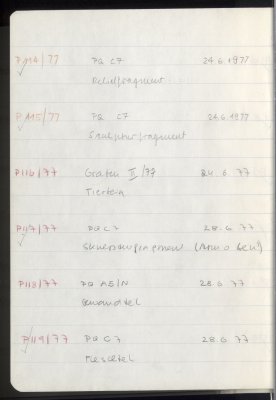 P114/77 PQ C7 24.6.1977
Relieffragment
P115/77 PQ C7 24.6.1977
Skulpturfragment
P116/77 Graben II/77 24.6.77
Tierbein
P117/77 PQ C7 28.6.77
(Arm o Bein)
P118/77 PQ AE/N 28.6.77
P119/77 PQ C7 28.6.77